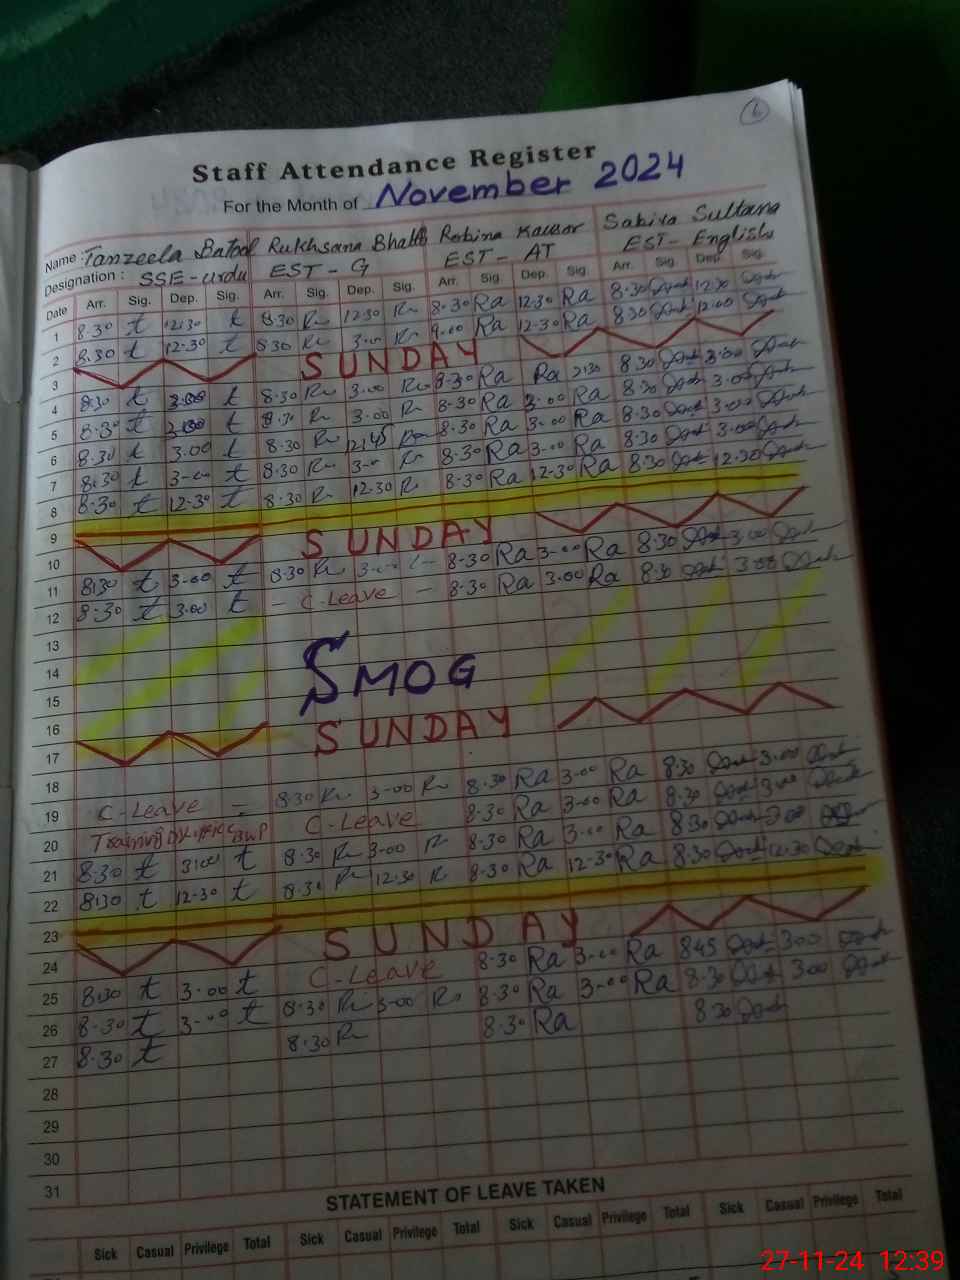 6
Staff Attendance Register
For the Month of November 2024
Name : Tanzeela Batool Rukhsana Bhatti Robina Kausar Sabira Sultana
Designation : SSE-Urdu EST-G EST-AT EST-English
Date Arr. Sig. Dep. Sig. Arr. Sig. Dep. Sig. Arr. Sig. Dep. Sig. Arr. Sig. Dep. Sig.
1 8.30 t 12.30 t 8.30 12.30 8.30 Ra 12.30 Ra 8.30 12.30
2 8.30 t 12.30 t 8.30 3.00 9.00 Ra 12.30 Ra 8.30 12.00
3 SUNDAY
4 8.30 t 3.00 t 8.30 3.00 8.30 Ra Ra 8.30 3.00
5 8.30 t 3.00 t 8.30 3.00 8.30 Ra 3.00 Ra 8.30 3.00
6 8.30 t 3.00 t 8.30 12.45 8.30 Ra 3.00 Ra 8.30 3.00
7 8.30 t 3.00 t 8.30 3.00 8.30 Ra 3.00 Ra 8.30 3.00
8 8.30 t 12.30 t 8.30 12.30 8.30 Ra 12.30 Ra 8.30 12.30
9
10 SUNDAY
11 8.30 t 3.00 t 8.30 3.00 8.30 Ra 3.00 Ra 8.30 3.00
12 8.30 t 3.00 t - C-Leave - 8.30 Ra 3.00 Ra 8.30 3.00
13
14 SMOG
15
16
17 SUNDAY
18
19 C-Leave - 8.30 3.00 8.30 Ra 3.00 Ra 8.30 3.00
20 Training C-Leave 8.30 Ra 3.00 Ra 8.30 3.00
21 8.30 t 3.00 t 8.30 3.00 8.30 Ra 3.00 Ra 8.30 3.00
22 8.30 t 12.30 t 8.30 12.30 8.30 Ra 12.30 Ra 8.30 12.30
23
24 SUNDAY
25 8.30 t 3.00 t C-Leave 8.30 Ra 3.00 Ra 8.45 3.00
26 8.30 t 3.00 t 8.30 3.00 8.30 Ra 3.00 Ra 8.30 3.00
27 8.30 t 8.30 8.30 Ra 8.30
28
29
30
31
STATEMENT OF LEAVE TAKEN
Sick Casual Privilege Total Sick Casual Privilege Total Sick Casual Privilege Total Sick Casual Privilege Total
27-11-24 12:39